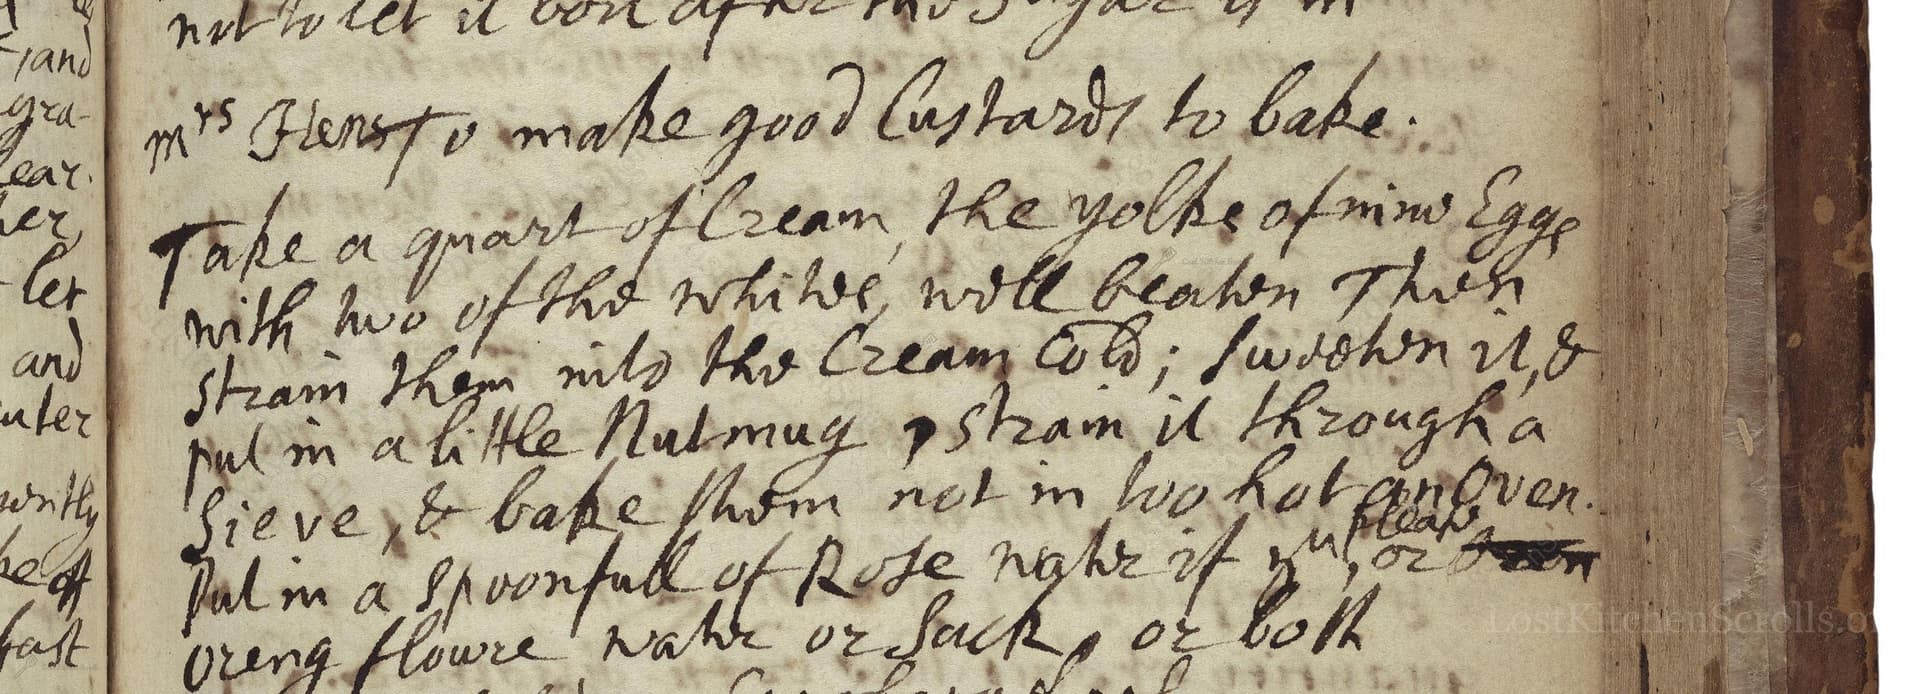 not to let it boil after the Sugar is in
mrs To make good Custards to bake.
Take a quart of Cream, the yolks of nine Eggs
with two of the whites, well beaten Then
strain them into the Cream Cold; Sweeten it, &
put in a little Nutmug, strain it through a
Sieve, & bake them not in too hot an Oven.
please
Put in a spoonfull of Rose water if yu, or
oreng floure water or Sack, or both
and
gra-
lear.
her,
let
and
uter
he off
fast
LostKitchenScrolls.o